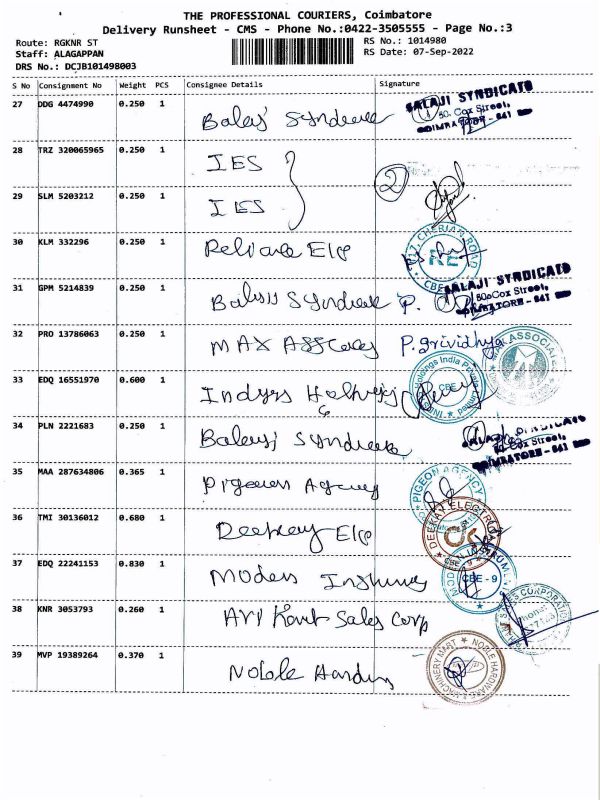 THE PROFESSIONAL COURIERS, Coimbatore
Delivery Runsheet - CMS - Phone No.:0422-3505555 - Page No.:3
Route: RGKNR ST
RS No.: 1014980
Staff: ALAGAPPAN
RS Date: 07-Sep-2022
DRS No.: DCJB101498003
S No Consignment No Weight PCS Consignee Details Signature
27 DDG 4474990 0.250 1 BALAJI SYNDICATE
50, Cox Street,
COIMBATORE - 641
28 TRZ 320065965 0.250 1 IES
29 SLM 5203212 0.250 1 IES 2
30 KLM 332296 0.250 1 Reliance Elc CHERIAN ROAD RE CBE
31 GPM 5214839 0.250 1 P. BALAJI SYNDICATE
Cox Street,
COIMBATORE - 641
32 PRO 13786063 0.250 1 MAX P. Srividhya ASSOCIATE
33 EDQ 16551970 0.600 1 Holdings India Private Limited CBE
34 PLN 2221683 0.250 1 SYNDICATE
Cox Street,
COIMBATORE - 641
35 MAA 287634806 0.365 1 Pigeon Agency PIGEON AGENCY
36 TMI 30136012 0.680 1 Deekay Elc DEEKAY ELECTRICAL
37 EDQ 22241153 0.830 1 Modern CBE - 9
38 KNR 3053793 0.260 1 Kant Sales Corp SALES CORPORATION
39 MVP 19389264 0.370 1 Noble NOBLE HARDWARE & MACHINERY MART